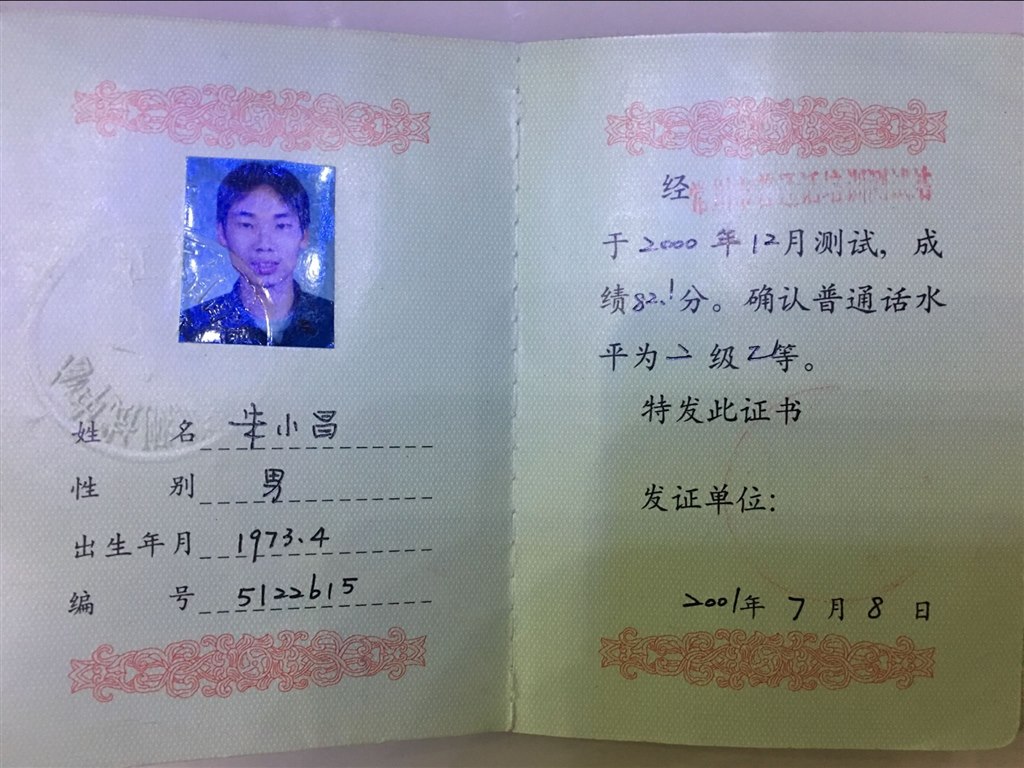 姓名 朱小昌
性别 男
出生年月 1973.4
编号 5122615
经
于2000年12月测试，成
绩82.1分。确认普通话水
平为二级乙等。
特发此证书
发证单位：
2001年7月8日